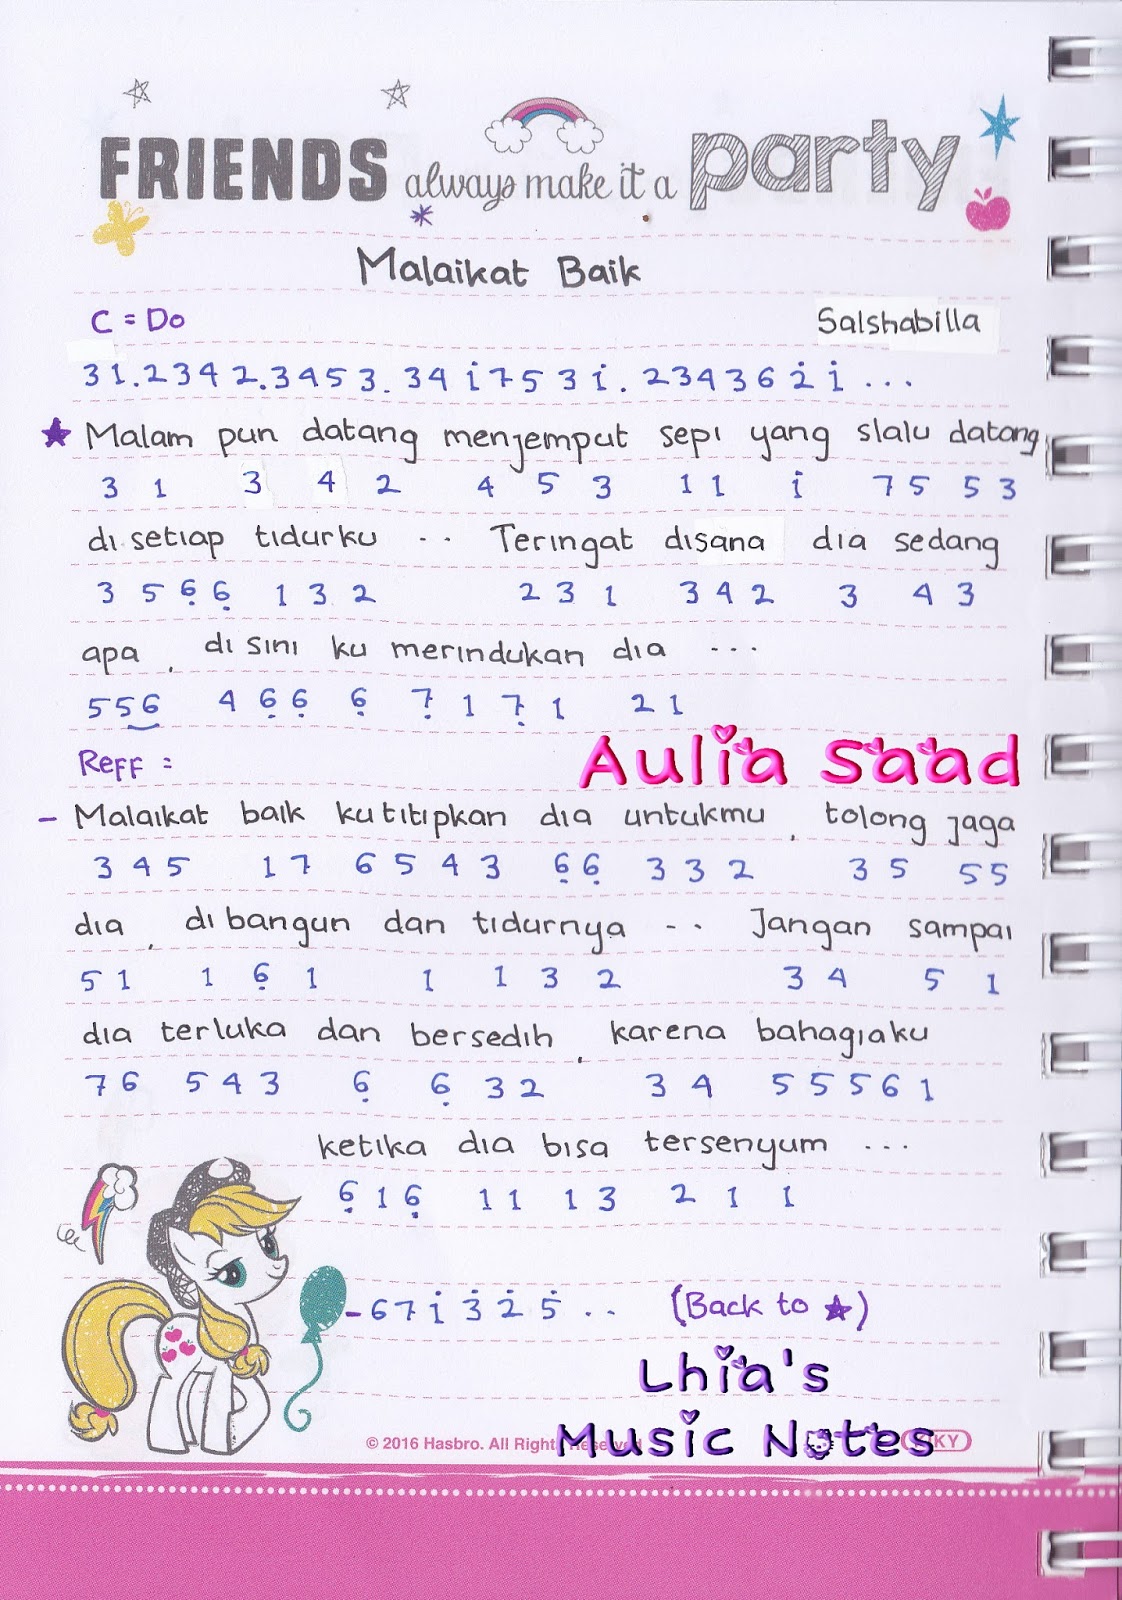 FRIENDS always make it a party
Malaikat Baik
C = Do Salshabilla
3 1 . 2 3 4 2 . 3 4 5 3 . 3 4 i 7 5 3 i . 2 3 4 3 6 2̇ i ...
★ Malam pun datang menjemput sepi yang slalu datang
3 1 3 4 2 4 5 3 1 1 i 7 5 5 3
di setiap tidurku .. Teringat disana dia sedang
3 5 6̣ 6̣ 1 3 2 2 3 1 3 4 2 3 4 3
apa , di sini ku merindukan dia ...
5 5 6 4 6̣ 6̣ 6̣ 7̣ 1 7̣ 1 2 1
Reff : Aulia Saad
- Malaikat baik ku titipkan dia untukmu , tolong jaga
3 4 5 1 7 6 5 4 3 6̣ 6̣ 3 3 2 3 5 5 5
dia , di bangun dan tidurnya .. Jangan sampai
5 1 1 6̣ 1 1 1 3 2 3 4 5 1
dia terluka dan bersedih , karena bahagiaku
7 6 5 4 3 6̣ 6̣ 3 2 3 4 5 5 5 6 1
ketika dia bisa tersenyum ...
6̣ 1 6̣ 1 1 1 3 2 1 1
- 6 7 i 3̇ 2̇ 5̇ .. (Back to ★)
Lhia's
Music Notes
© 2016 Hasbro. All Rights Reserved